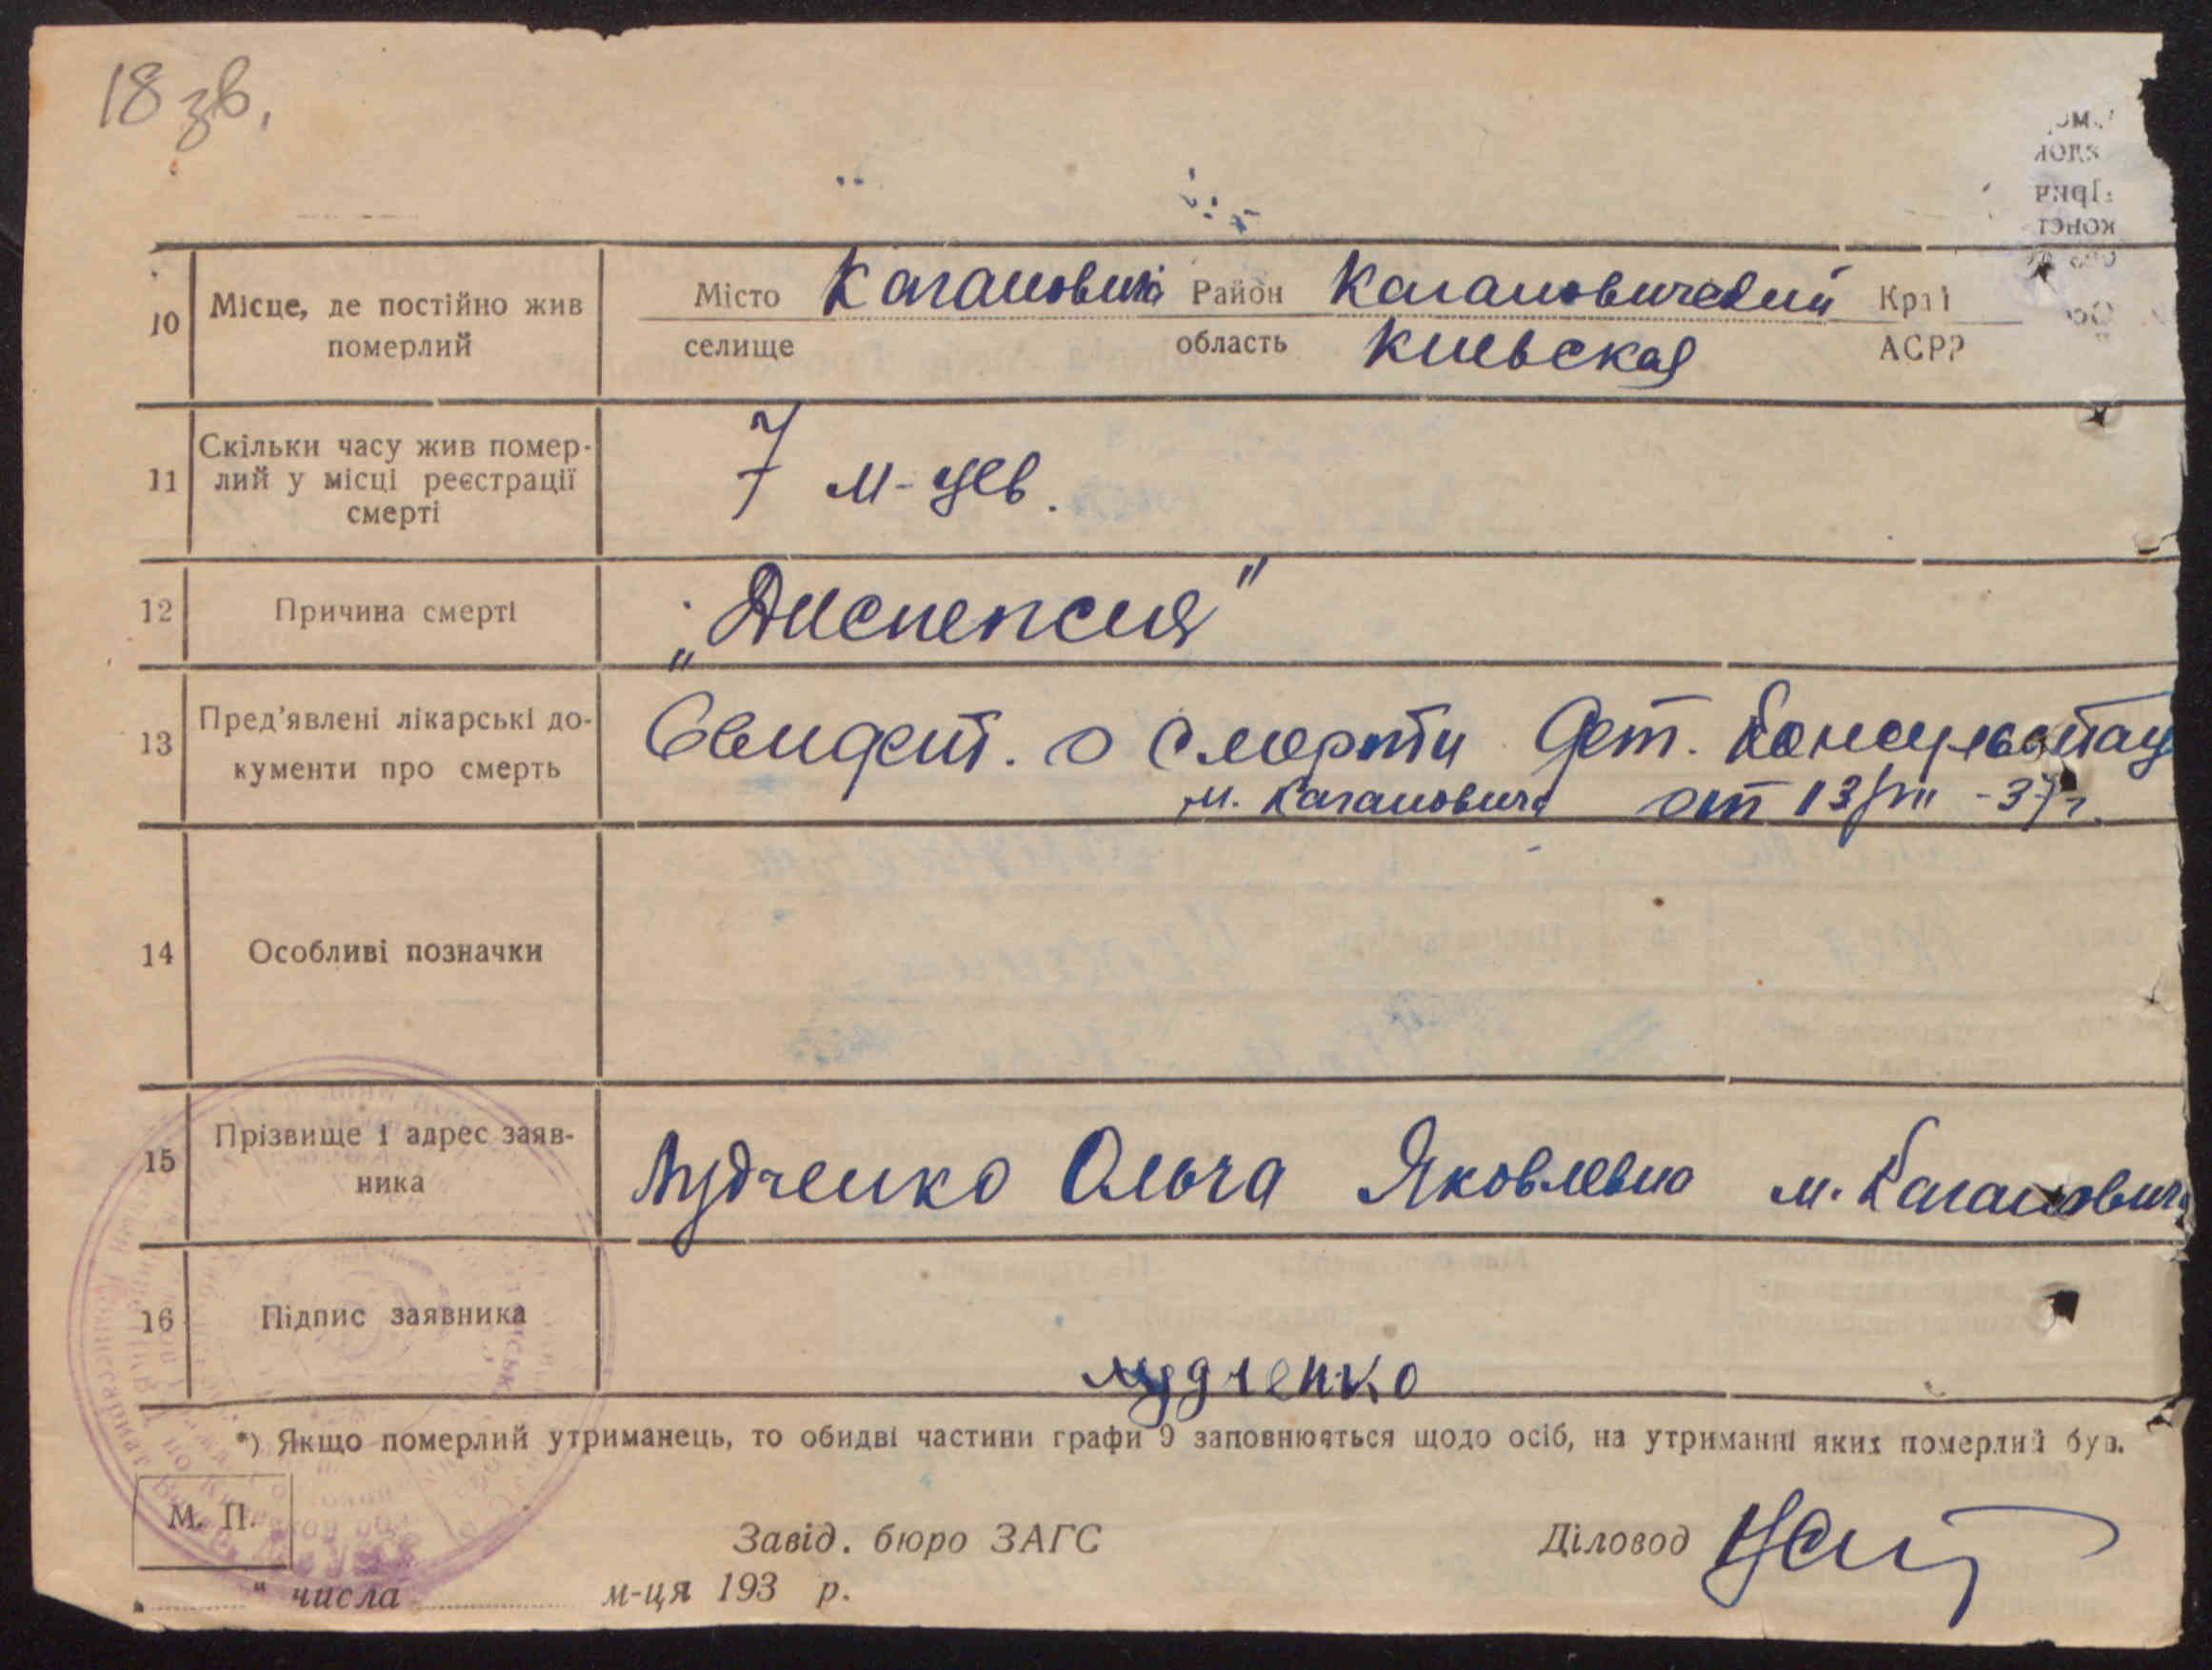 18 зв.
10 Місце, де постійно жив померлий
Місто Кагановичі Район Кагановический Край
селище область Киевская АСРР
11 Скільки часу жив помер-
лий у місці реєстрації
смерті
7 м-цев.
12 Причина смерті
„Диспепсия"
13 Пред'явлені лікарські до-
кументи про смерть
Свидет. о смерти Дет. Консультац
м. Кагановичі от 13/VII -37г.
14 Особливі позначки
15 Прізвище і адрес заяв-
ника
Лудченко Ольга Яковлевна м. Кагановичі
16 Підпис заявника
Лудченко
*) Якщо померлий утриманець, то обидві частини графи 9 заповнюяться щодо осіб, на утриманні яких померлий був.
М. П.
Завід. бюро ЗАГС Діловод
" числа м-ця 193 р.